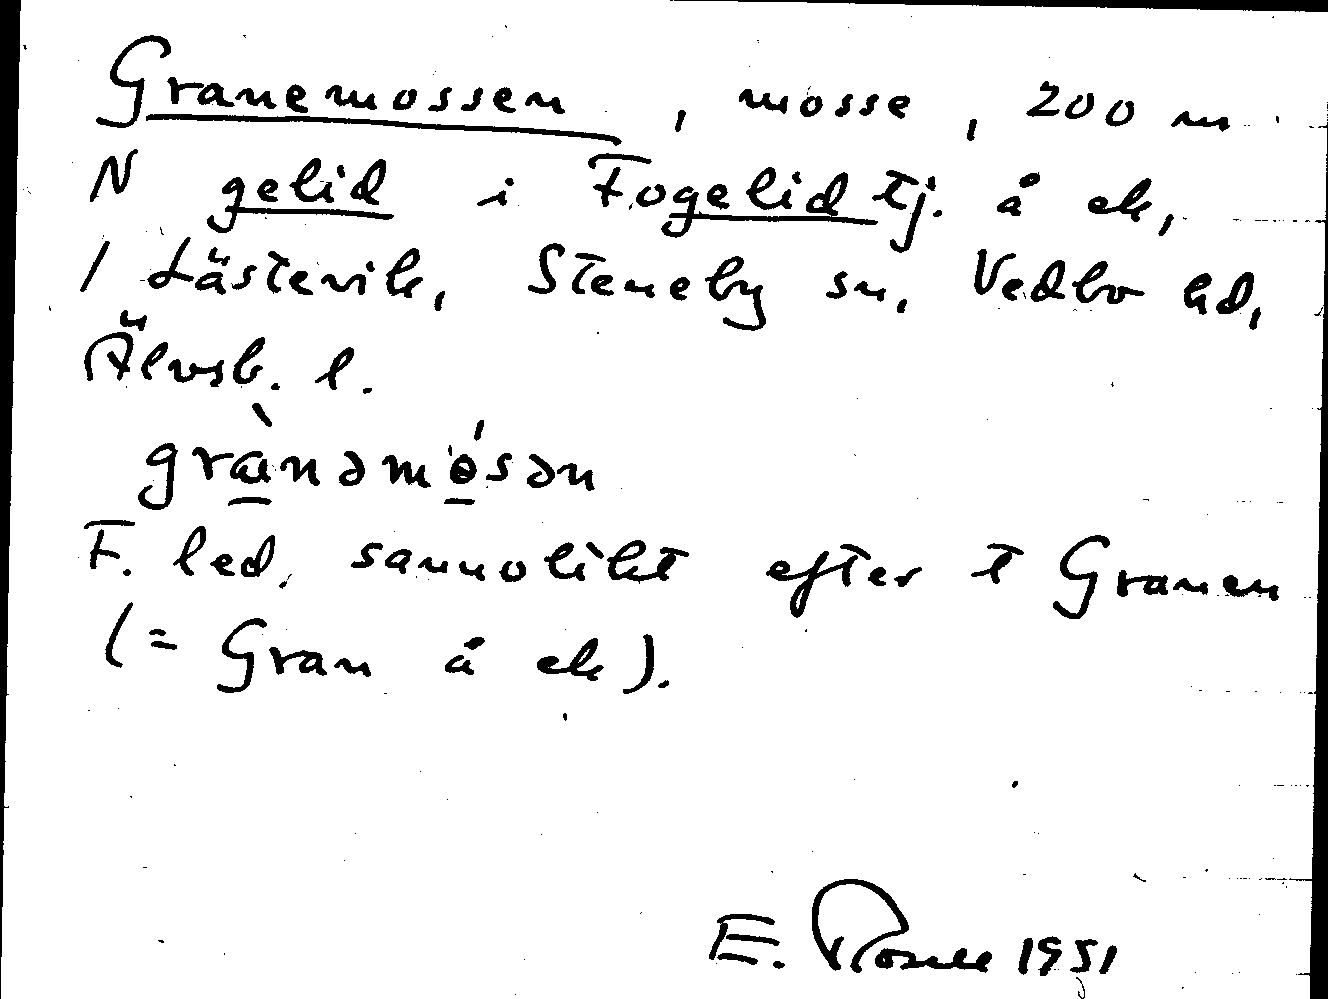 Granemossen, mosse, 200 m
N gelid i Fogelidtj. å ek,
1 Låstevik, Steneby sn, Vedbo hd,
Älvsb. l.
grànəmó̀sən
F. led. sannolikt efter t Granen
(= Gran å ek).
E. Rosell 1951